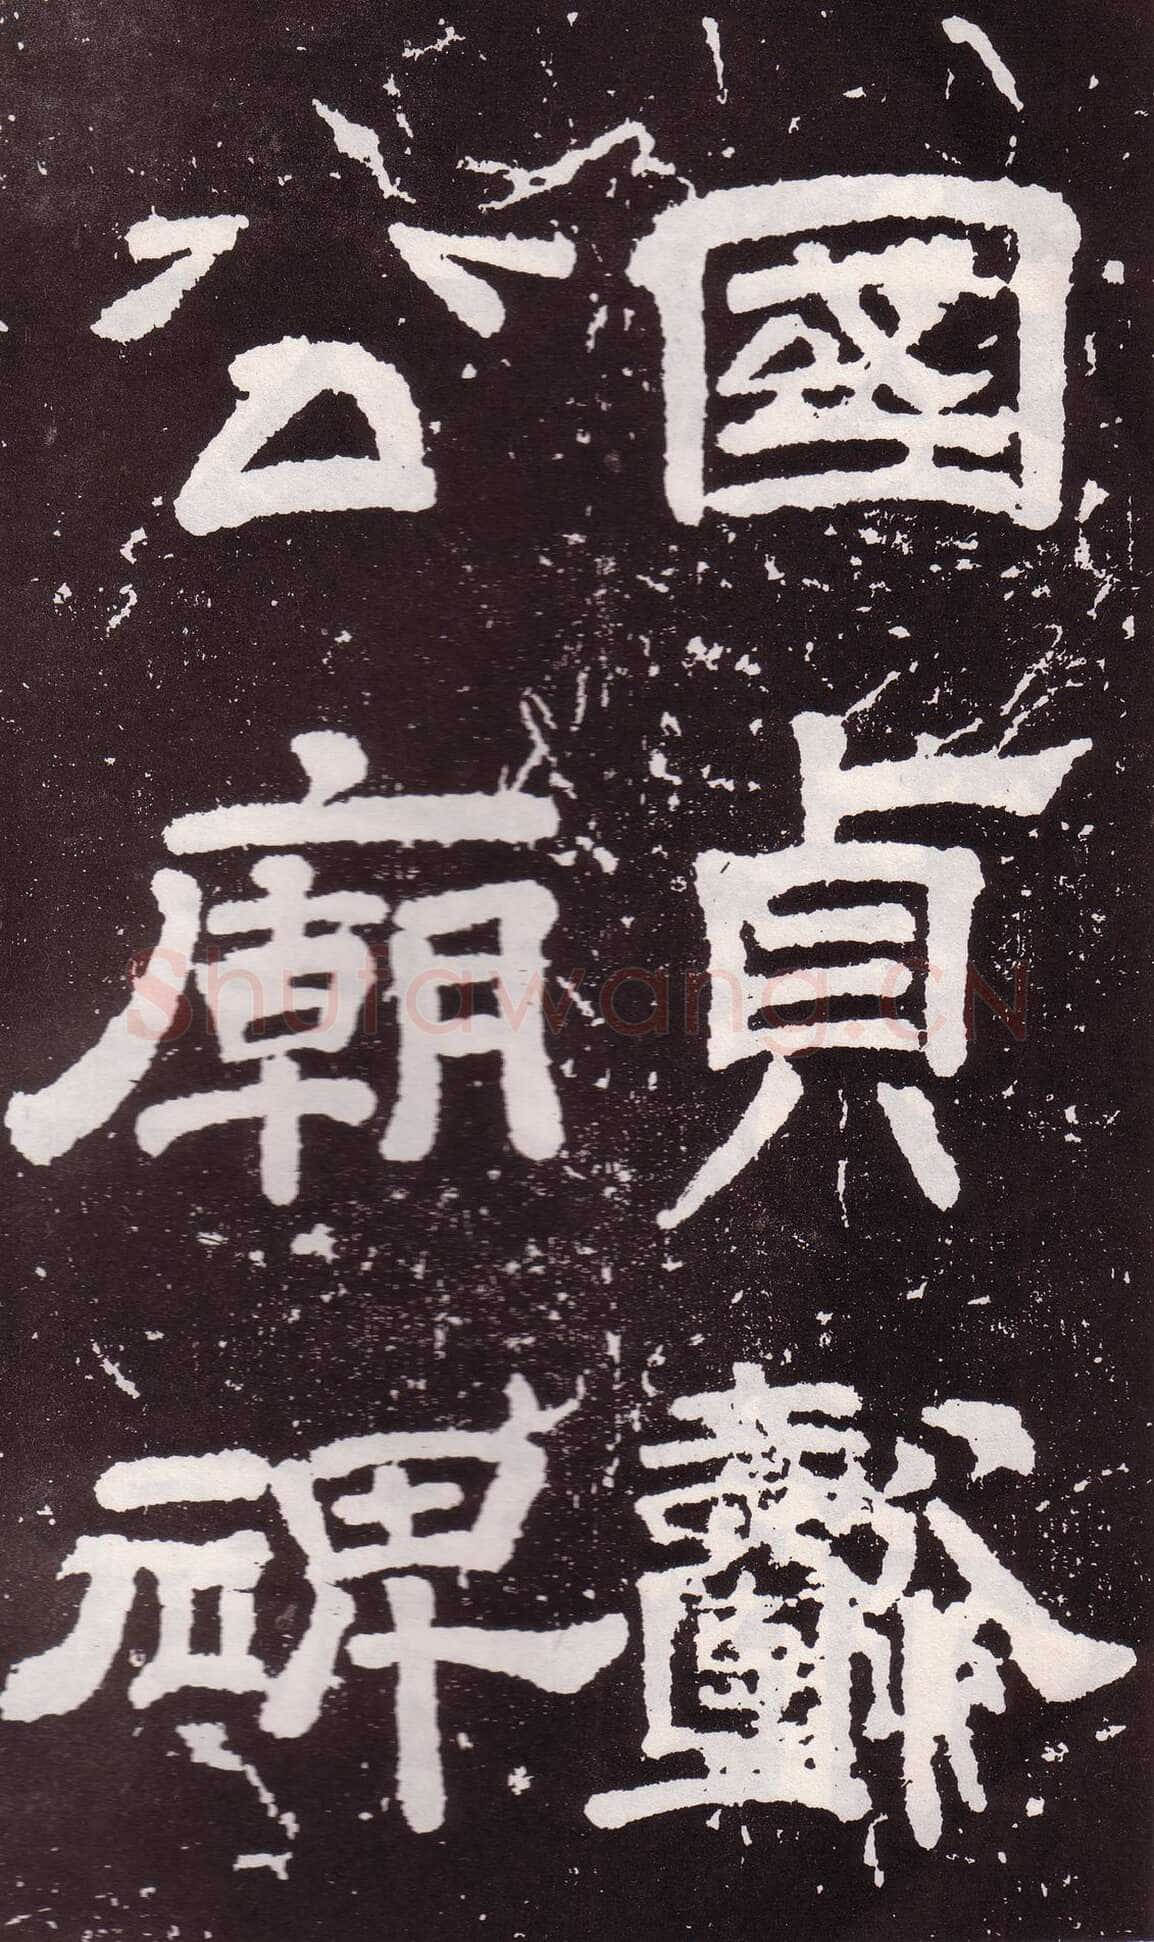 國貞
公廟碑
Shufawang.CN